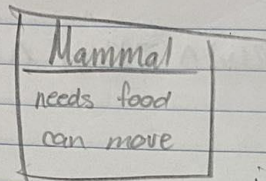 Mammal
needs food
can move